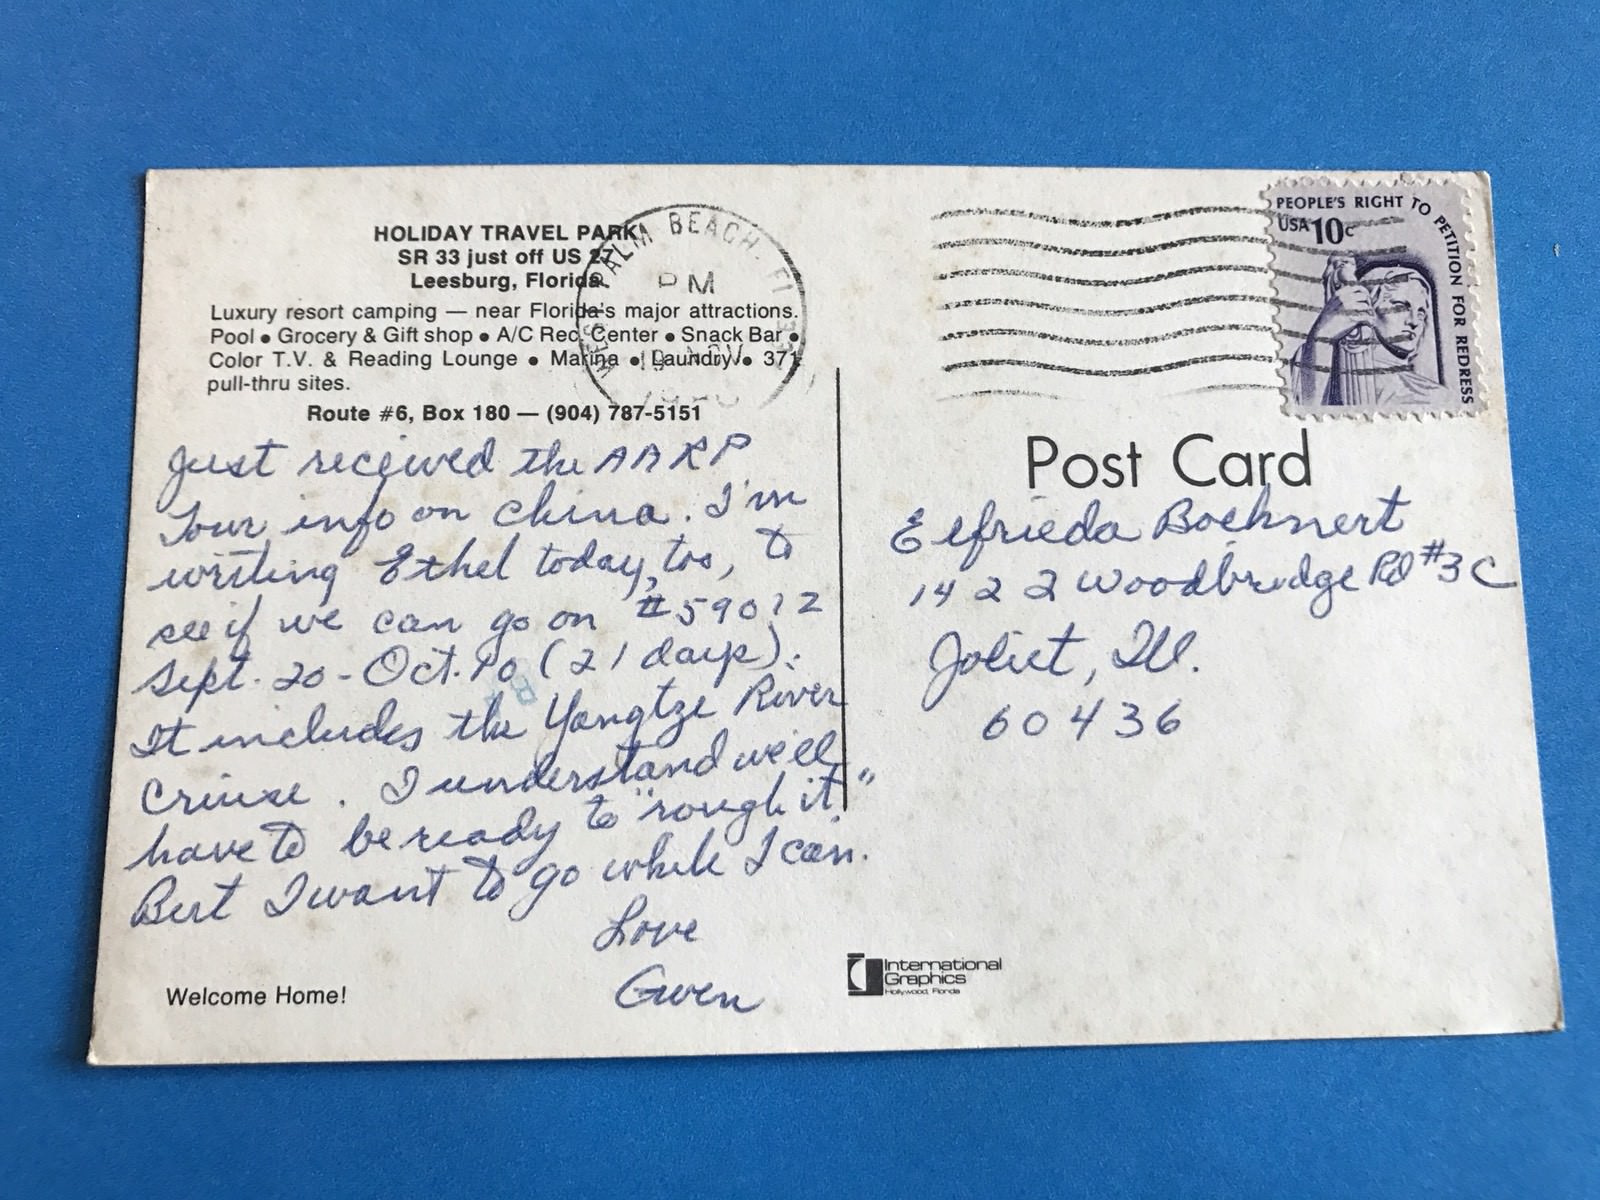 HOLIDAY TRAVEL PARK
SR 33 just off US 27
Leesburg, Florida.
Luxury resort camping — near Florida's major attractions.
Pool • Grocery & Gift shop • A/C Rec. Center • Snack Bar •
Color T.V. & Reading Lounge • Marina • Laundry • 371
pull-thru sites.
Route #6, Box 180 — (904) 787-5151
Just received the AARP
Tour info on China. I'm
writing Ethel today, too, to
see if we can go on #59012
Sept. 20 - Oct. 10 (21 days).
It includes the Yangtze River
Criuse. I understand we'll
have to be ready to "rough it."
But I want to go while I can.
Love
Gwen
Welcome Home!
PALM BEACH, FL
PM
PEOPLE'S RIGHT TO PETITION FOR REDRESS
USA 10c
Post Card
Elfrieda Boehnert
1422 Woodbridge Rd #3C
Joliet, Ill.
60436
International
Graphics
Hollywood, Florida